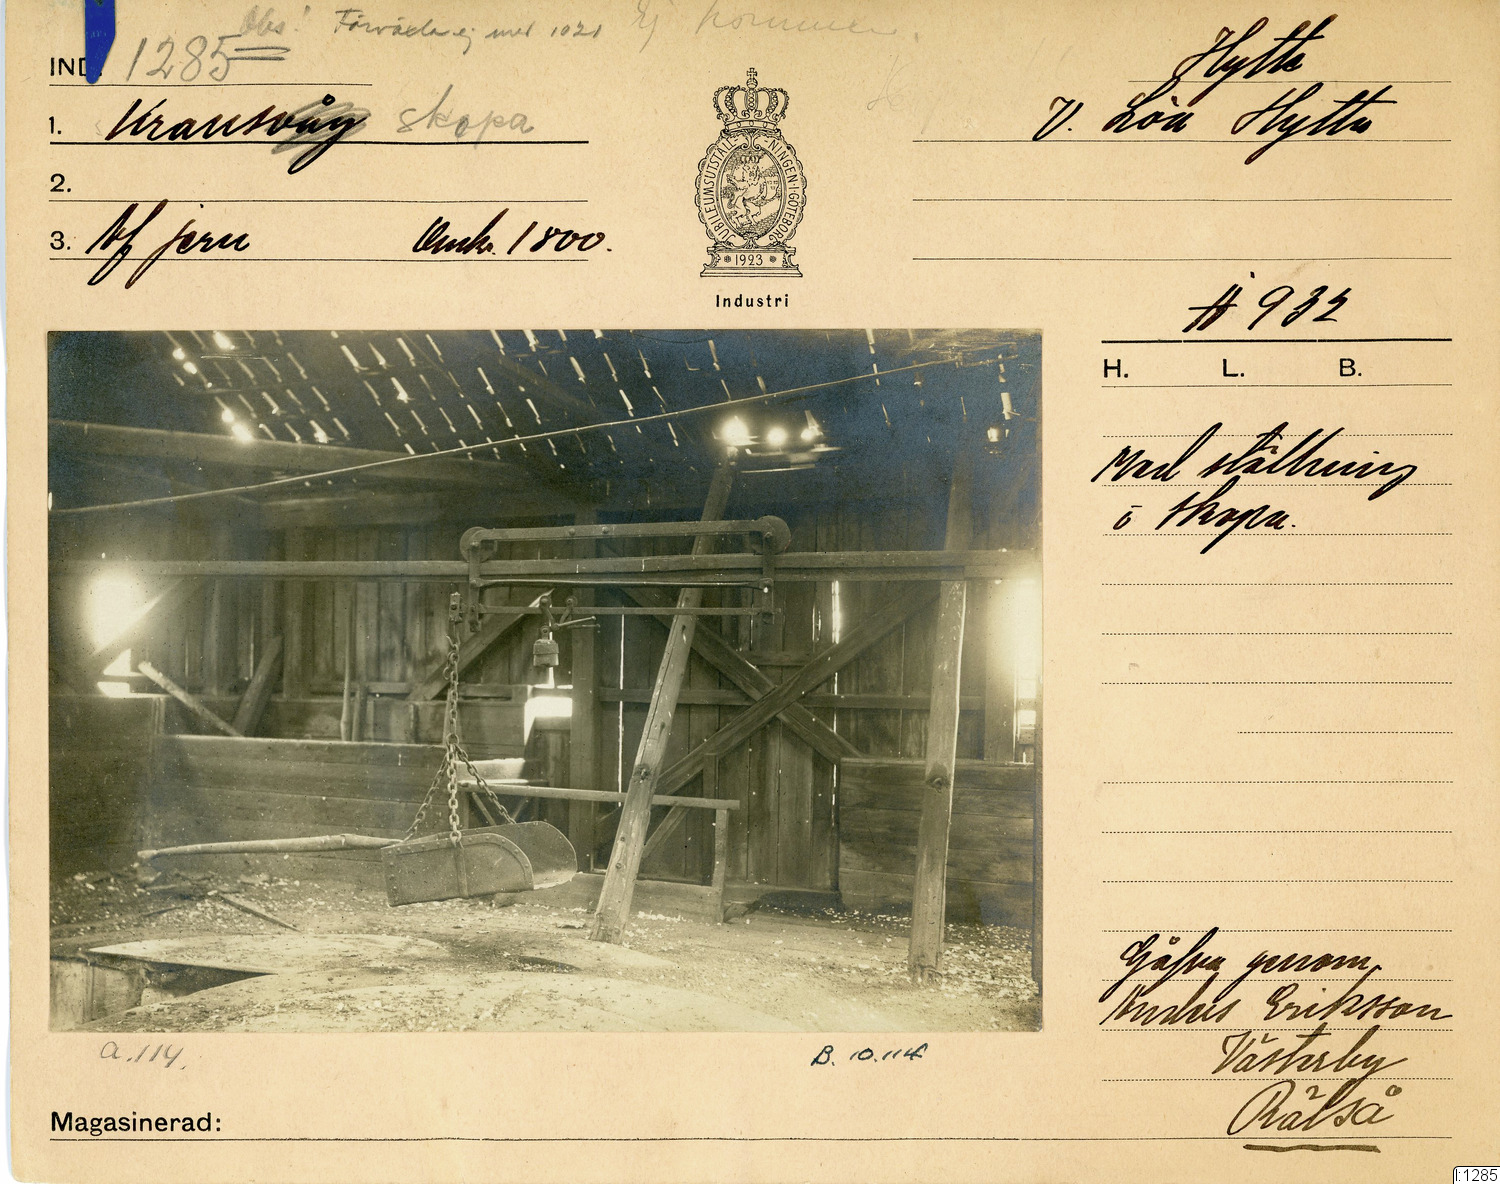 Obs! Förväxla ej med 1021 Ej kommer.
IND. 1285
1. Kransvåg skopa
2.
3. Af jern Omkr. 1800.
JUBILEUMSUTSTÄLLNINGEN I GÖTEBORG
1923
Industri
Hytte
V. Löa Hytta
# 932
H. L. B.
Med ställning
o skopa.
Gåfva genom
Anders Eriksson
Västerby
Rälså
a.114.
B. 10.114
Magasinerad:
I:1285